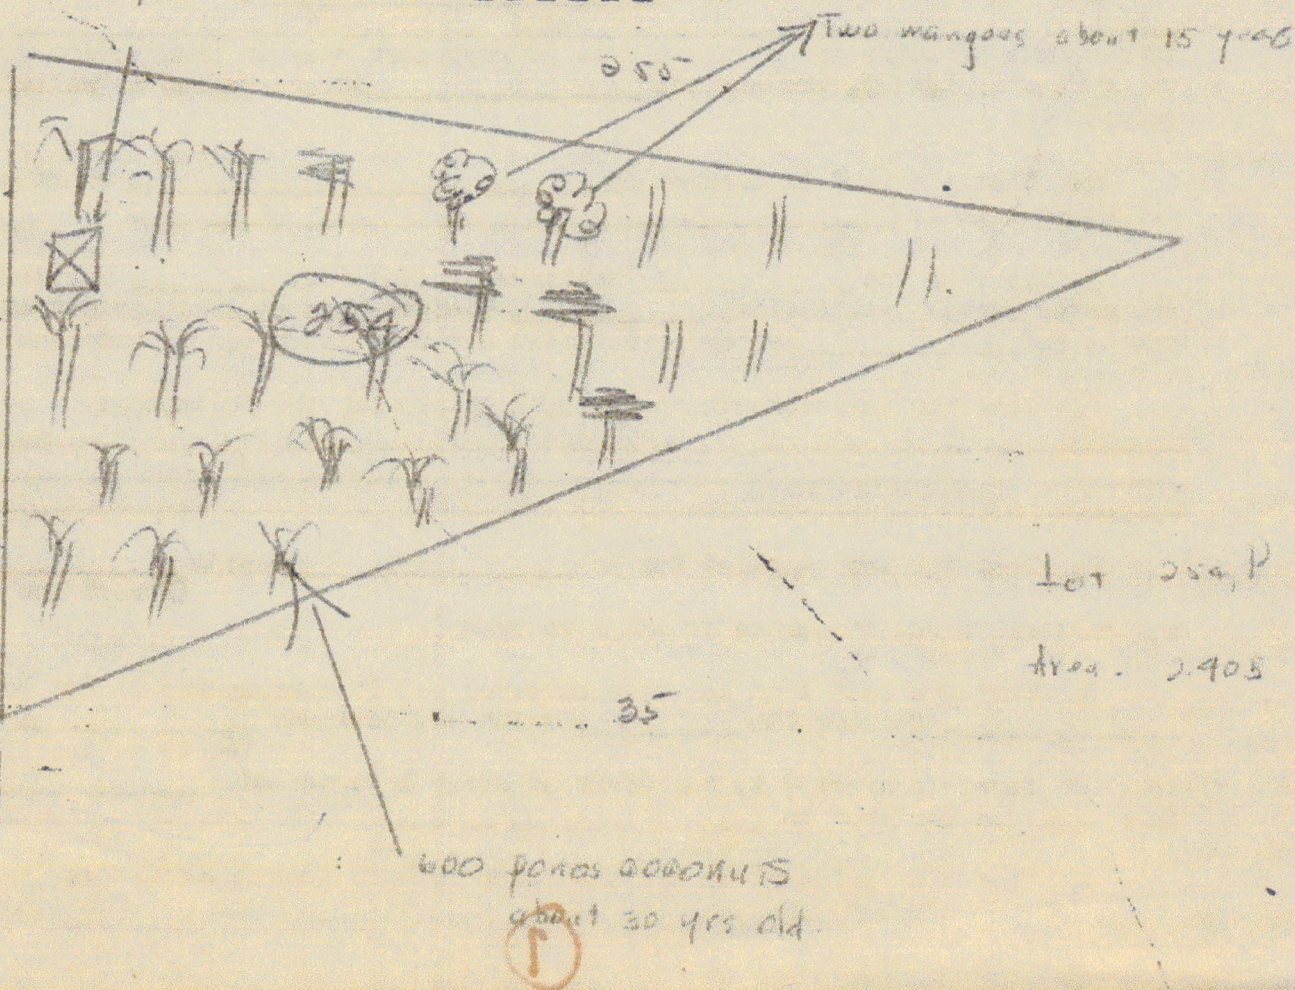 Two mangoes about 15 years
255
254
Lot 254, P
Area. 2.405
35
600 ponos coconuts
about 30 yrs old.
1